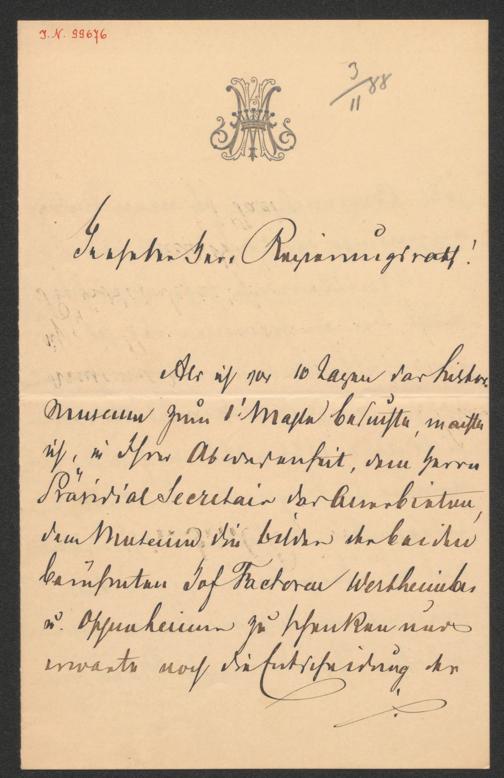 I. N. 99676
3/11 88
Geehrter Herr Regierungsrath!
Als ich vor 10 Tagen das histor.
Museum zum 1' Male besuchte, machte
ich, in Ihrer Abwesenheit, dem Herrn
Präsidial Secretair das Anerbieten,
dem Museum die bilder der beiden
berühmten Hof Factoren Wertheimber
u. Oppenheimer zu schenken und
erwarte noch die Entscheidung der